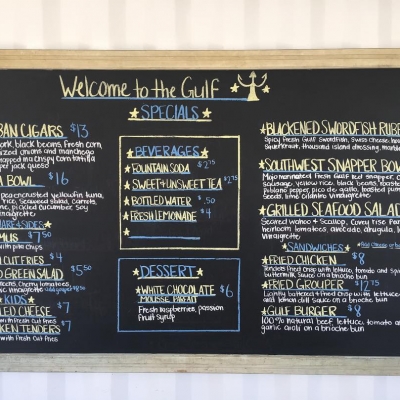 Welcome to the Gulf
SPECIALS
BAN CIGARS $13
ork, black beans, fresh corn,
ized onions and manchego
apped in a crispy corn tortilla
per jack queso
BOWL $16
crusted yellowfin tuna,
rice, seaweed salad, carrots,
pickled cucumber, soy
vinaigrette
& SIDES
MUS $7.50
with pita chips
CUT FRIES $4
D GREEN SALAD $5.50
beans, cherry tomatoes,
vinaigrette
KIDS
LED CHEESE $7
with Fresh Cut Fries
KEN TENDERS $7
with Fresh Cut Fries
BEVERAGES
FOUNTAIN SODA $2.75
SWEET & UNSWEET TEA $2.75
BOTTLED WATER .50
FRESH LEMONADE $4
DESSERT
WHITE CHOCOLATE $6
MOUSSE PARFAIT
Fresh raspberries, passion
fruit syrup
BLACKENED SWORDFISH RUBE
Spicy fresh Gulf Swordfish, Swiss cheese, hous
sauerkraut, thousand island dressing, marble
SOUTHWEST SNAPPER BOW
fresh Gulf red snapper,
sausage, yellow rice, black beans, roaste
poblano pepper, pico de gallo, toasted
seeds, lime cilantro vinaigrette
GRILLED SEAFOOD SALAD
Scallop, Covey rise Far
heirloom tomatoes, avocado, arugula, le
Vinaigrette
SANDWICHES
FRIED CHICKEN $8
Tenders fried crisp with lettuce, tomato and
buttermilk sauce on a brioche bun
FRIED GROUPER $12.75
Lightly battered + fried crisp with lettuce,
and lemon dill sauce on a brioche bun
GULF BURGER $8
100% natural beef, lettuce, tomato an
garlic aioli on a brioche bun